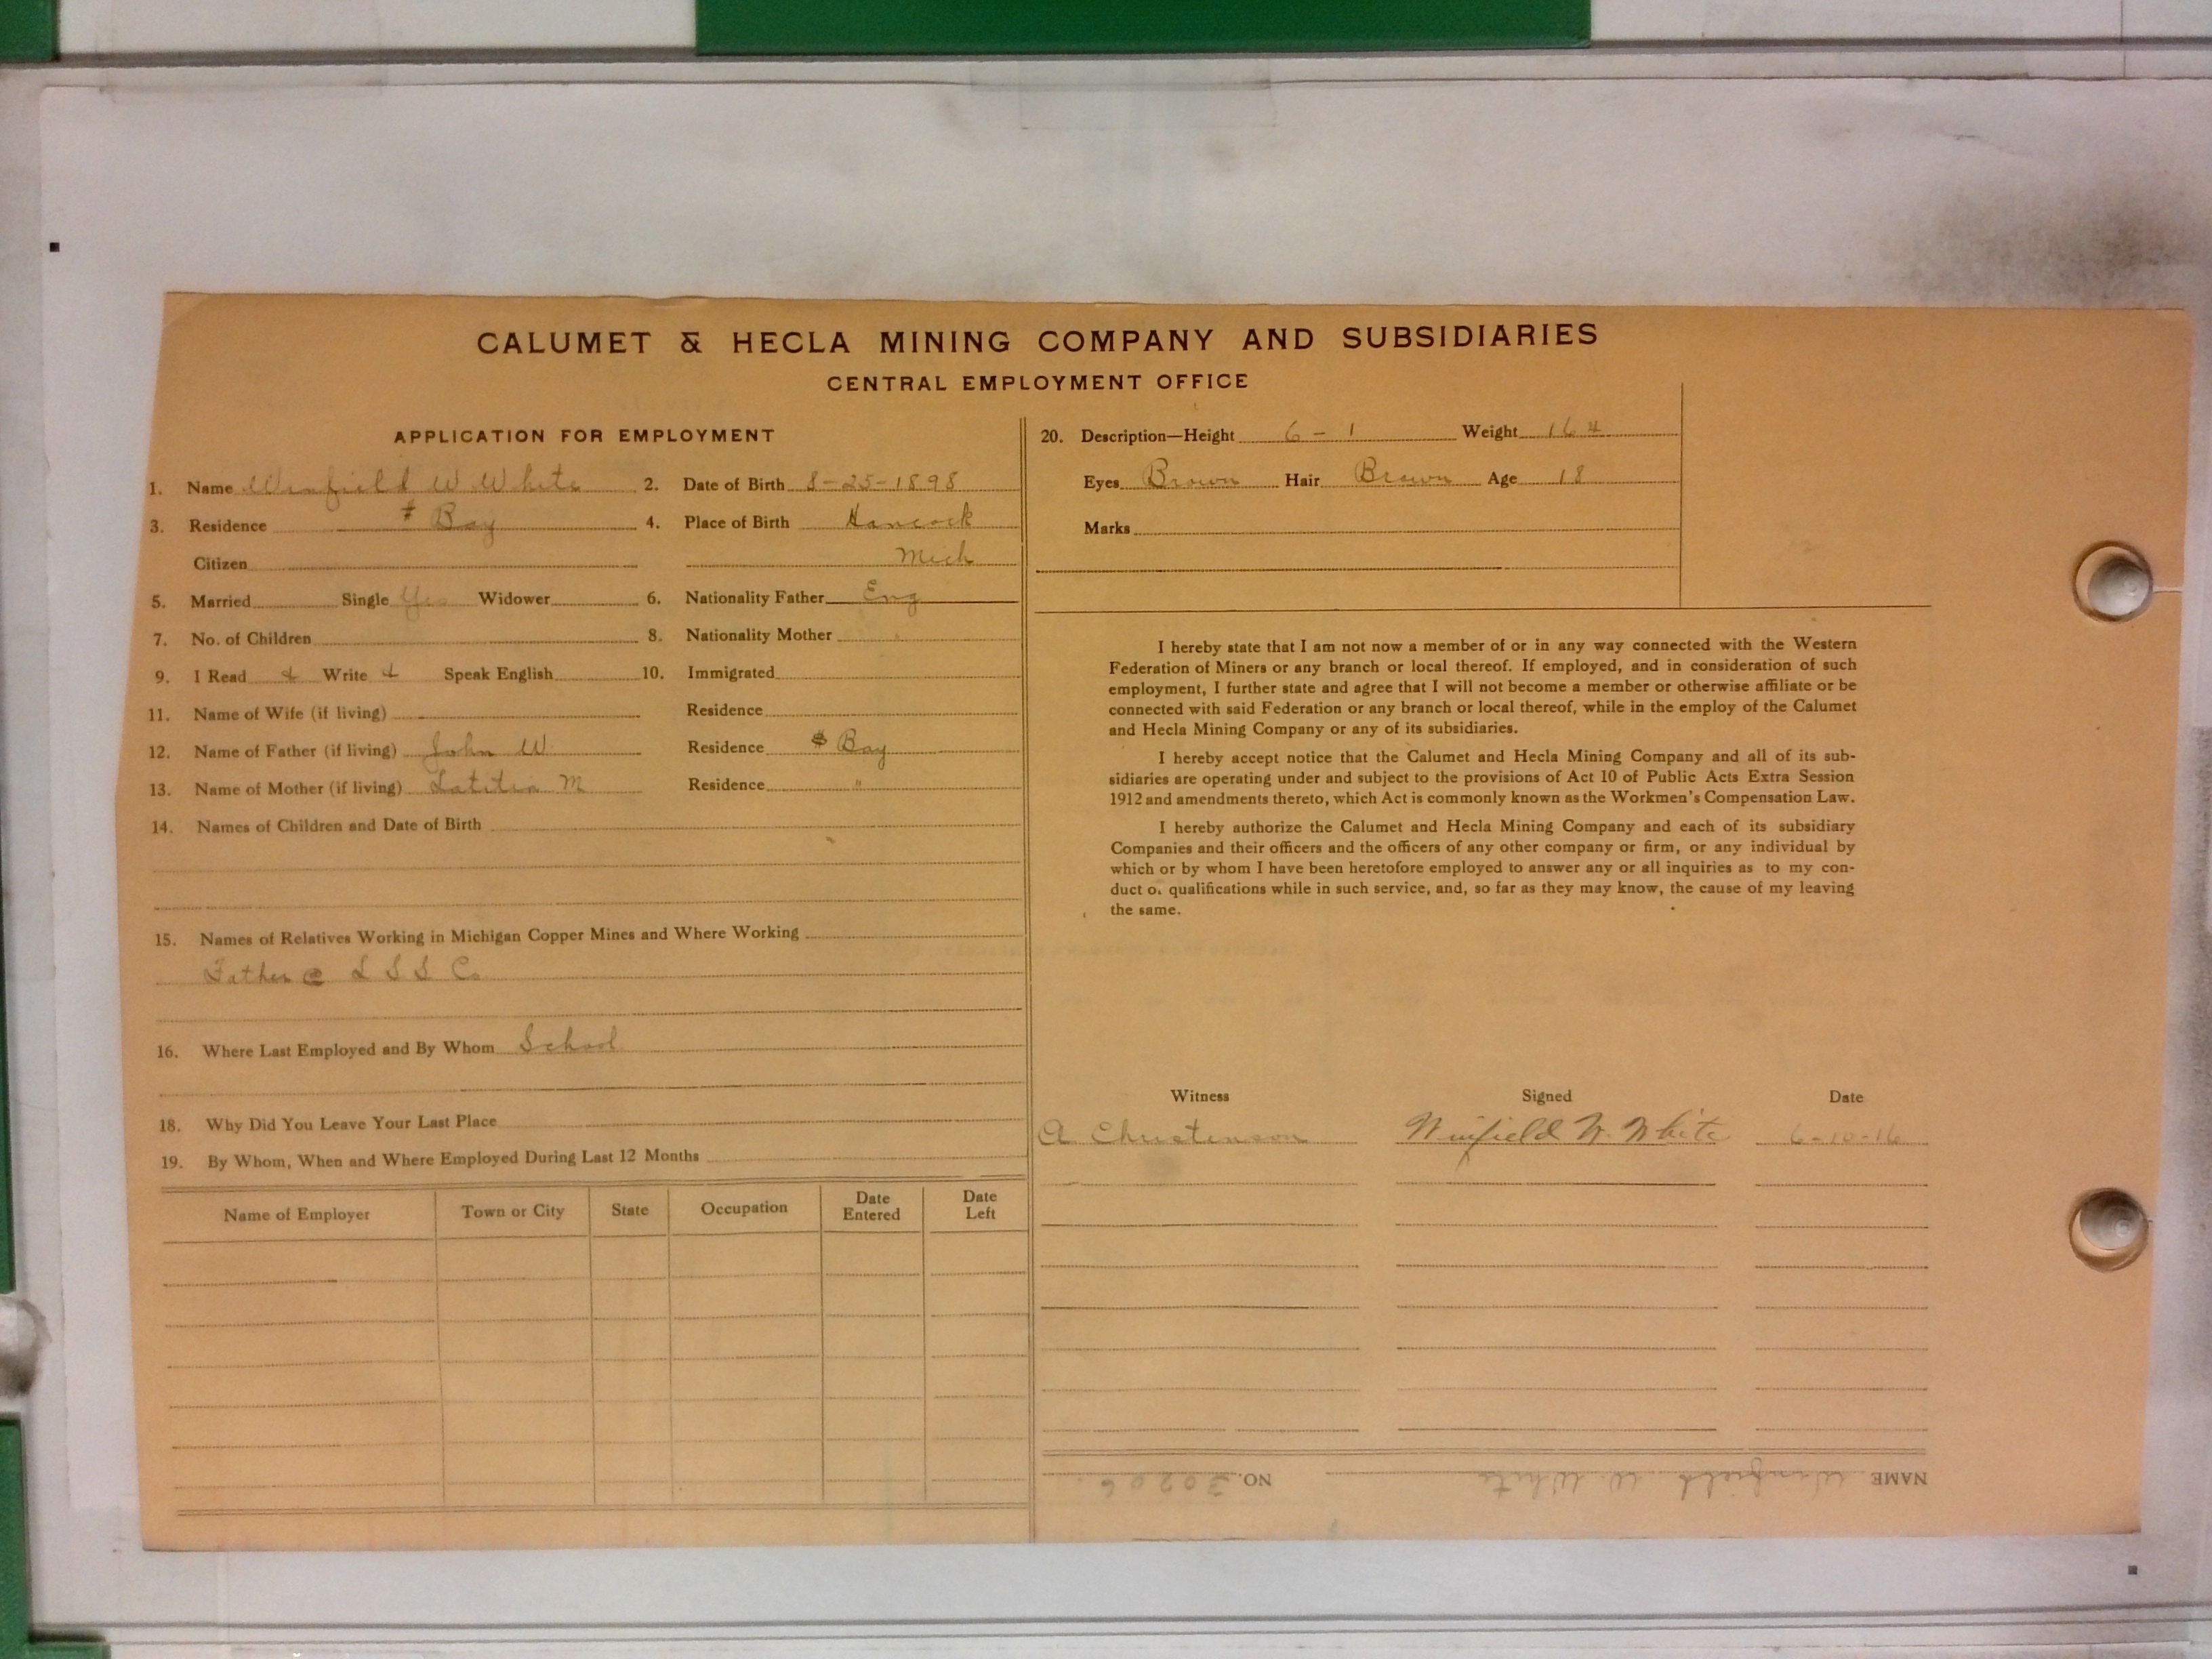 CALUMET & HECLA MINING COMPANY AND SUBSIDIARIES
CENTRAL EMPLOYMENT OFFICE
APPLICATION FOR EMPLOYMENT
1. Name Winfield W White 2. Date of Birth 8-25-1898
3. Residence Bay 4. Place of Birth Hancock
Citizen Mich
5. Married Single Yes Widower 6. Nationality Father Eng
7. No. of Children 8. Nationality Mother
9. I Read Write Speak English 10. Immigrated
11. Name of Wife (if living) Residence
12. Name of Father (if living) John W Residence Bay
13. Name of Mother (if living) Latitia M Residence "
14. Names of Children and Date of Birth
15. Names of Relatives Working in Michigan Copper Mines and Where Working
Father @ L S S Co
16. Where Last Employed and By Whom School
18. Why Did You Leave Your Last Place
19. By Whom, When and Where Employed During Last 12 Months
Name of Employer Town or City State Occupation Date Entered Date Left
20. Description—Height 6-1 Weight 164
Eyes Brown Hair Brown Age 18
Marks
I hereby state that I am not now a member of or in any way connected with the Western
Federation of Miners or any branch or local thereof. If employed, and in consideration of such
employment, I further state and agree that I will not become a member or otherwise affiliate or be
connected with said Federation or any branch or local thereof, while in the employ of the Calumet
and Hecla Mining Company or any of its subsidiaries.
I hereby accept notice that the Calumet and Hecla Mining Company and all of its sub-
sidiaries are operating under and subject to the provisions of Act 10 of Public Acts Extra Session
1912 and amendments thereto, which Act is commonly known as the Workmen's Compensation Law.
I hereby authorize the Calumet and Hecla Mining Company and each of its subsidiary
Companies and their officers and the officers of any other company or firm, or any individual by
which or by whom I have been heretofore employed to answer any or all inquiries as to my con-
duct or qualifications while in such service, and, so far as they may know, the cause of my leaving
the same.
Witness Signed Date
A Christenson Winfield W. White 6-10-16
NAME Winfield W. White NO. 30206